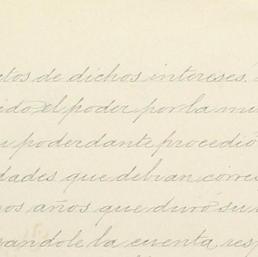 tos de dichos intereses.
ido el poder por la mu
u poderdante procedió
dades que debian corres
nos años que duró su
andole la cuenta resp